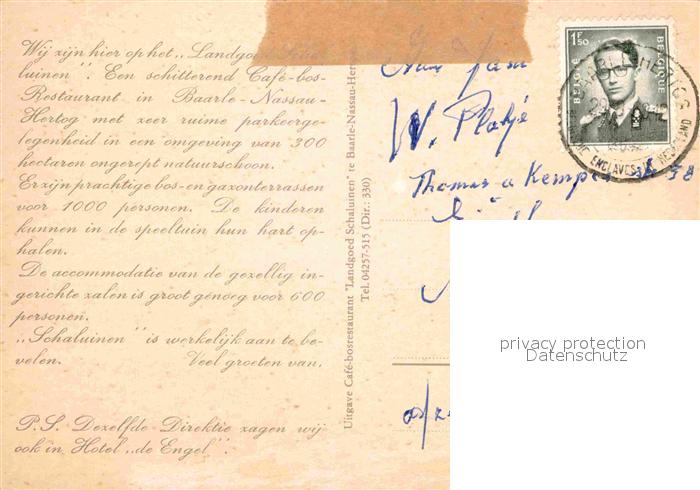 Wij zijn hier op het „Landgoed
luinen”. Een schitterend Café-bos-
Restaurant in Baarle-Nassau-
Hertog met zeer ruime parkeerge-
legenheid in een omgeving van 300
hectaren ongerept natuurschoon.
Er zijn prachtige bos- en gazonterrassen
voor 1000 personen. De kinderen
kunnen in de speeltuin hun hart op-
halen.
De accommodatie van de gezellig in-
gerichte zalen is groot genoeg voor 600
personen.
„Schaluinen” is werkelijk aan te be-
velen. Veel groeten van.
P.S. Dezelfde Direktie zagen wij
ook in Hotel „de Engel”.
Uitgave Café-bosrestaurant "Landgoed Schaluinen" te Baarle-Nassau-Her
Tel. 04257-515 (Dir.: 330)
Fam
W. Platjé
Thomas a Kempis 58
1F50
BELGIE
BELGIQUE
ENCLAVES NEDERLAND
privacy protection
Datenschutz